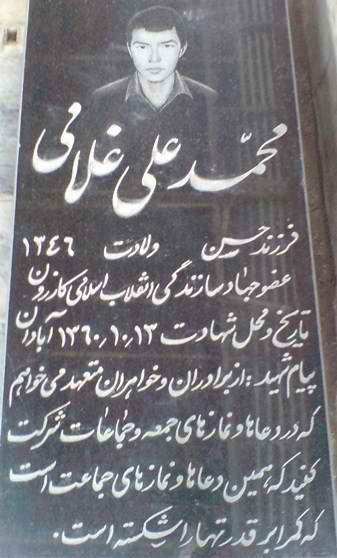 محمّد علی غلامی
فرزند حسین ولادت ۱۳۴۶
عضو جهاد سازندگی انقلاب اسلامی کازرون
تاریخ و محل شهادت ۱۳۶۰٫۱۰٫۱۳ آبادان
پیام شهید : از برادران و خواهران متعهد می خواهم
که در دعاها و نمازهای جمعه و جماعات شرکت
کنید که همین دعاها و نمازهای جماعت است
که کمر ابرقدرتها را شکسته است .